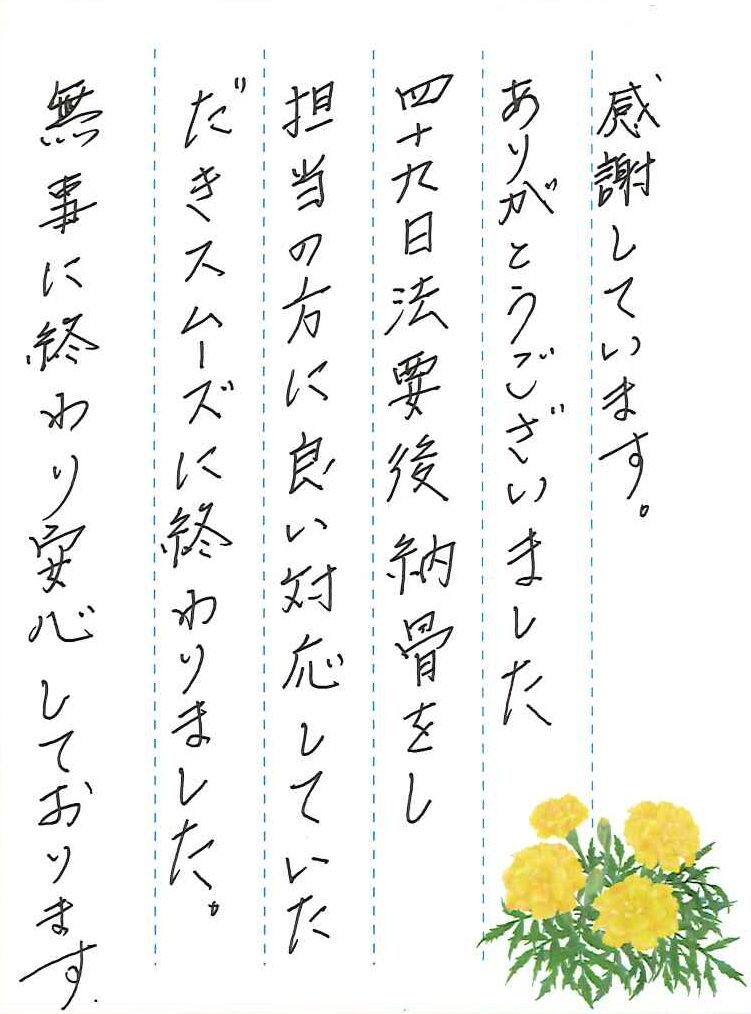 感謝しています。
ありがとうございました
四十九日法要後納骨をし
担当の方に良い対応していた
だきスムーズに終わりました。
無事に終わり安心しております.